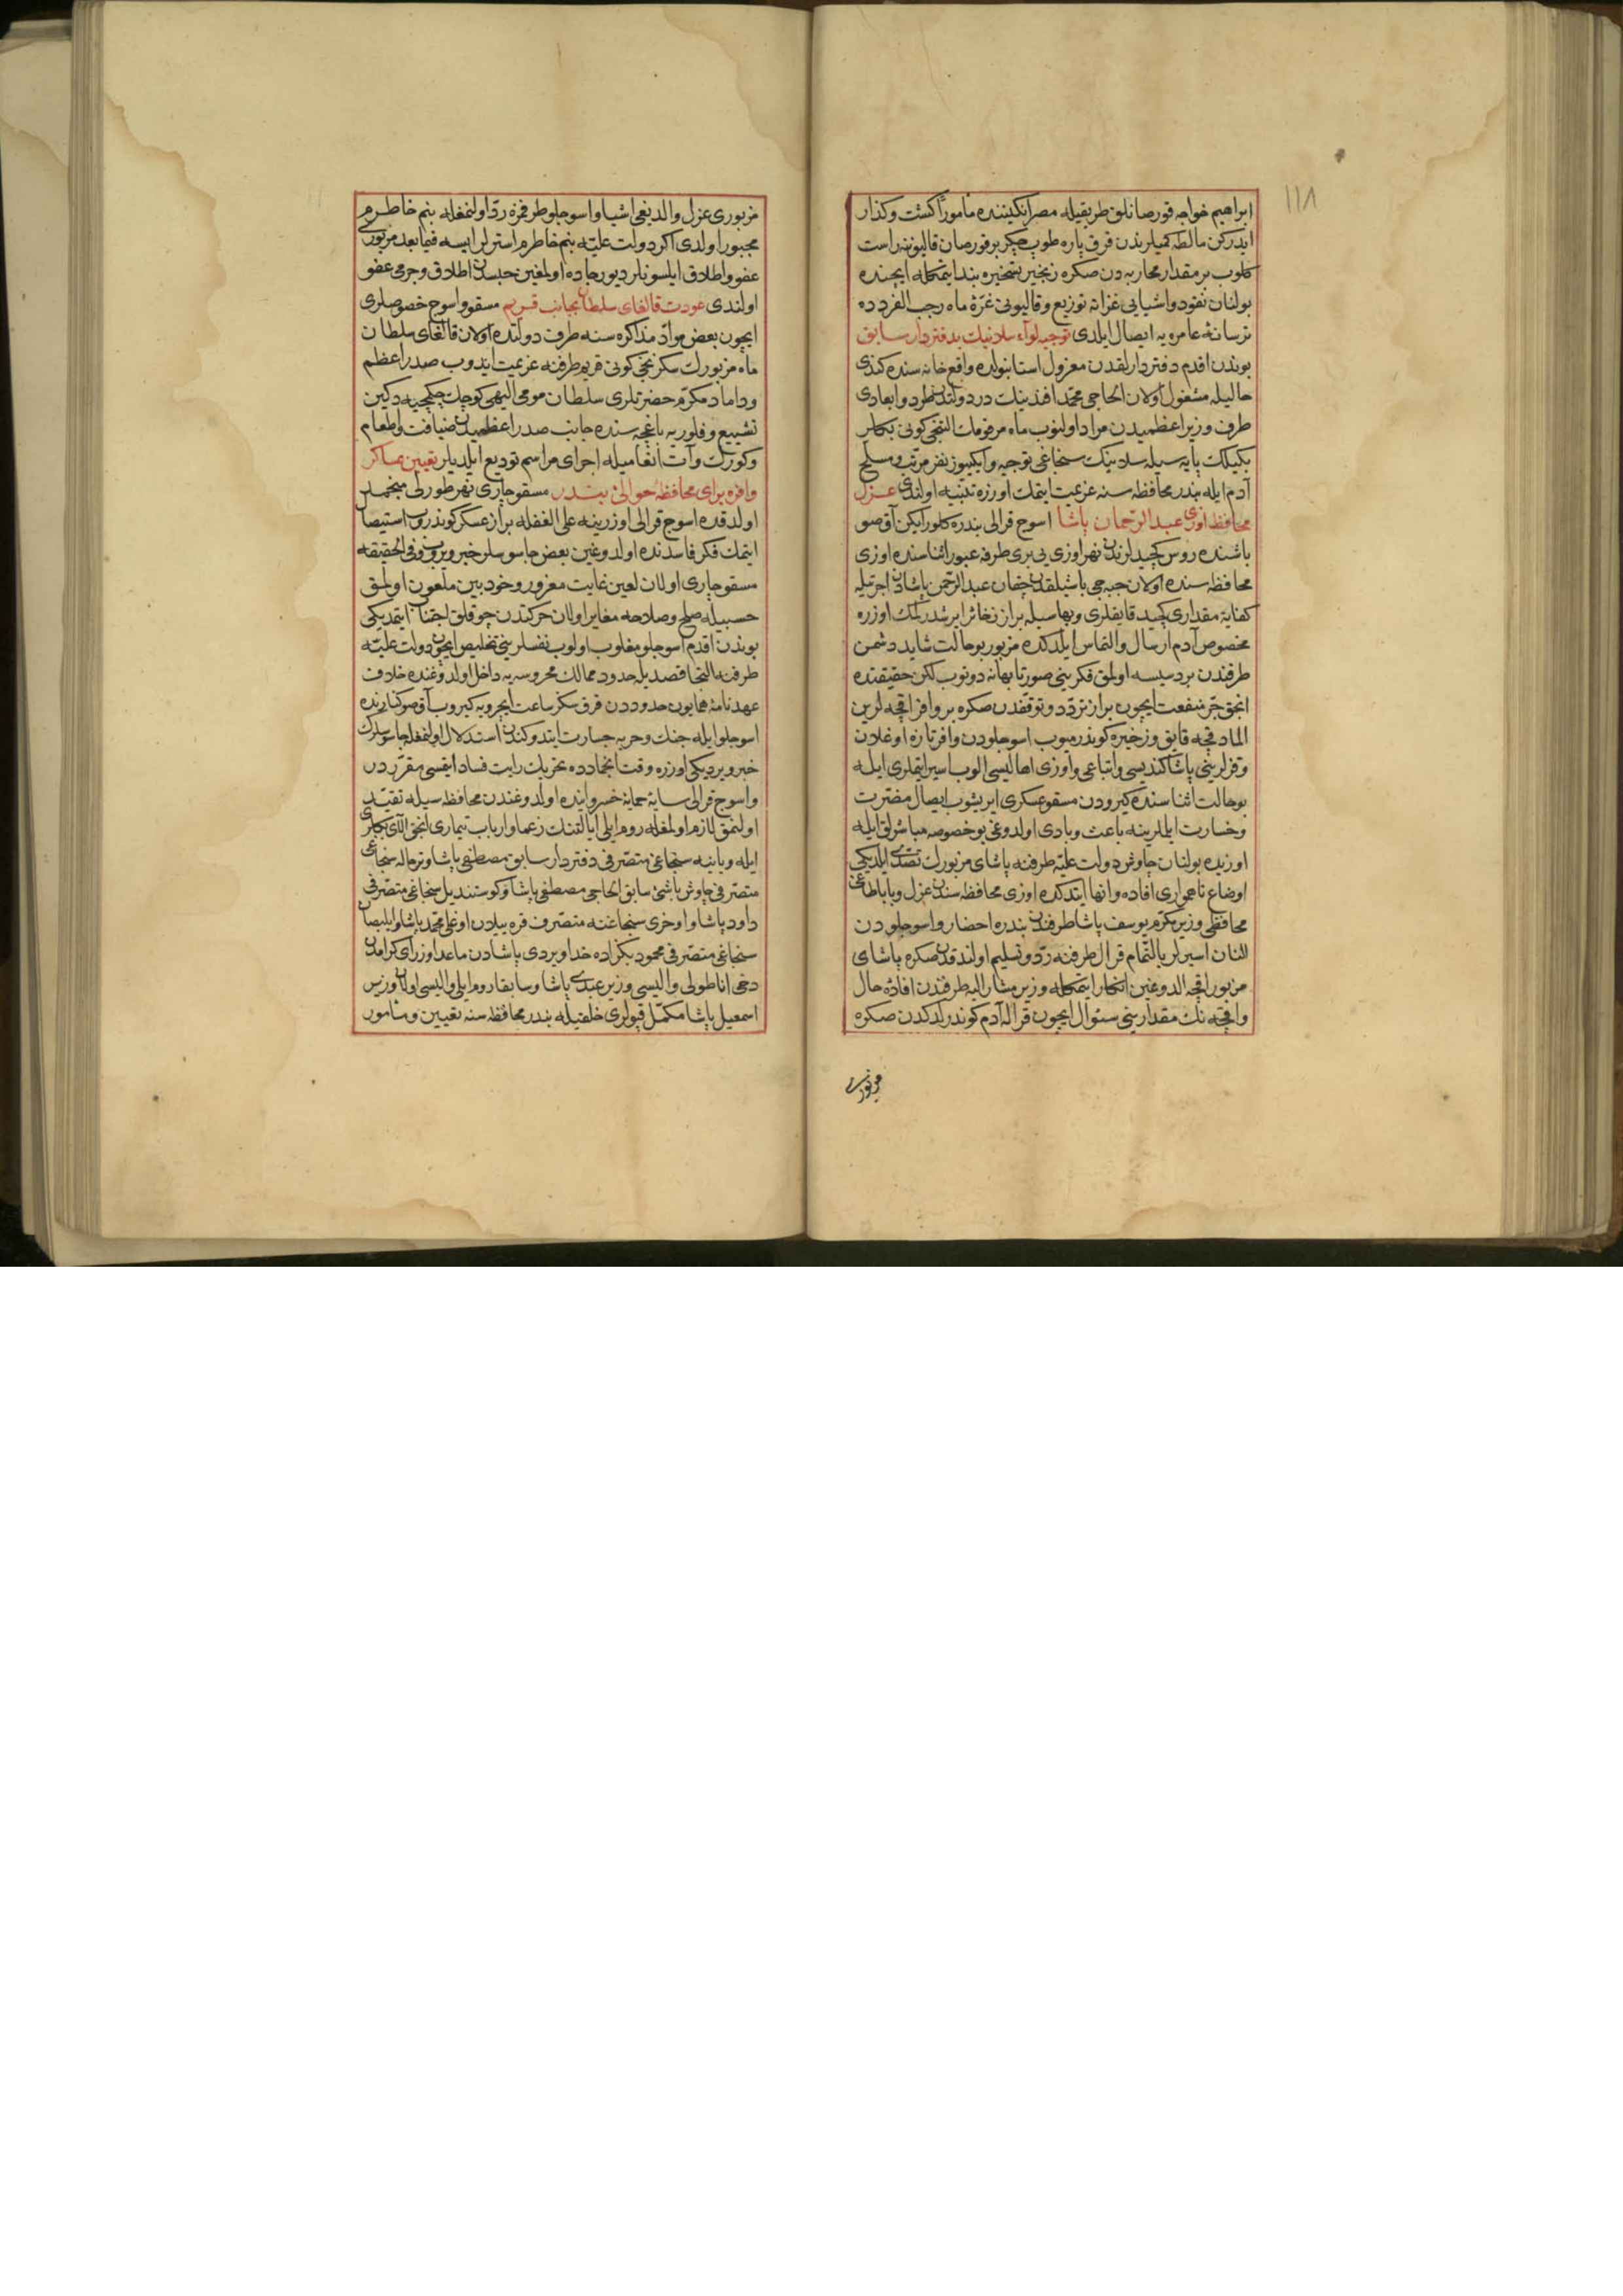 ١١٨
ابراهيم خواجه قورصانلق طريقيله مصر انكيننده مأمورًا كشت وكذار
ايدركن مالطه كميلرندن قرق پاره طوپ چكر بر قورصان قاليوننه راست
كلوب بر مقدار محاربه دن صكره زنجير تسخيره بند ايتمكله ايچنده
بولنان نقود و اشيايى غزاته توزيع وقاليونى غرّهٔ ماه رجب الفردده
ترسانهٔ عامره يه ايصال ايلدى توجيه لواء سلانيك بدفتردار سابق
بوندن اقدم دفتردارلقدن معزول استانبولده واقع خانه سنده كندى
حاليله مشغول اولان الحاجى محمد افندينك در دولتدن طرد وابعادى
طرف وزير اعظميدن مراد اولنوب ماه مرقومك النجى كونى بكلر
بكيلك پايه سيله سلانيك سنجاغى توجيه وايكيوز نفر مرتب ومسلح
آدم ايله بندر محافظه سنه عزيمت ايتمك اوزره تنبيه اولندى عزل
محافظ اوزى عبد الرحمان پاشا اسوج قرالى بندره كلورايكن آق صو
باشنده روس كچيدلرندن نهر اوزى يى برى طرفه عبور اثناسنده اوزى
محافظه سنده اولان جبه جى باشيلقدن چقان عبد الرحمن پاشادن اجرتيله
كفايه مقدارى كچيد قايقلرى وبهاسيله براز ذخائر ايرشدرلمك اوزره
مخصوص آدم ارسال والتماس ايلدكده مزبور بو حالت شايد دشمن
طرفندن بر دسيسه اولمق فكرينى صورتا بهانه دوتوب لكن حقيقتده
انجق جرّ منفعت ايچون براز تردّد وتوقفدن صكره بر وافر اقچه لرين
المادقجه قايق وذخيره كوندرميوب اسوجلودن وافر تازه اوغلان
وقزلرينى پاشا كنديسى واتباعى واوزى اهاليسى الوب اسير ايتملرى ايله
بو حالت اثناسنده كيرودن مسقو عسكرى ايريشوب ايصال مضرّت
وخسارت ايلملرينه باعث وبادى اولدوغى بو خصوصه مباشرلق ايله
اوزيده بولنان چاوش دولت عليّه طرفنه پاشاى مزبورك تصدّى ايلديكى
اوضاع ناهموارى افاده وانها ايتدكده اوزى محافظه سندن عزل وباباطاغى
محافظى وزير مكرّم يوسف پاشا طرفندن بندره احضار واسوجلودن
النان اسيرلر بالتّمام قرال طرفنه ردّ وتسليم اولندقدن صكره پاشاى
مزبور اقچه الدوغين انكار ايتمكله وزير مشار اليه طرفندن افادهٔ حال
واقچه نك مقدارينى سئوال ايچون قراله آدم كوندرلدكدن صكره
مزبورى
مزبورى عزل والديغى اشيا واسوجلو طرفمزه ردّ اولنمغله بنم خاطرم
مجبور اولدى اكر دولت عليّه بنم خاطرم استرلر ايسه فيما بعد مزبورى
عفو واطلاق ايلسونلر ديو رجاده اولمغين حبسدن اطلاق وجرمى عفو
اولندى عودت قالغاى سلطان بجانب قريم مسقو واسوج خصوصلرى
ايچون بعض موادّ مذاكره سنه طرف دولتده اولان قالغاى سلطان
ماه مزبورك سكزنجى كونى قريم طرفنه عزيمت ايدوب صدر اعظم
وداماد مكرّم حضرتلرى سلطان مومى اليهى كوچك چكمجيه دكين
تشييع وفلوريه باغچه سنده جانب صدر اعظميدن ضيافت وطعام
وكورك وآت انعاميله اجراى مراسم توديع ايلديلر تعيين عساكر
وافره براى محافظهٔ حوالئ بندر مسقو چارى نهر طورلى منجمد
اولدقده اسوج قرالى اوزرينه على الغفله براز عسكر كوندروب استيصال
ايتمك فكر فاسدنده اولدوغين بعض جاسوسلر خبر ويروب وفى الحقيقه
مسقو چارى اولان لعين غايت مغرور وخودبين ملعون اولمق
حسبيله صلح وصلاحه مغاير اولان حركتدن چوقلق اجتناب ايتمديكى
بوندن اقدم اسوجلو مغلوب اولوب نفسلرينى تخليص ايچون دولت عليّه
طرفنه التجا قصديله حدود ممالك محروسه يه داخل اولدوغنده خلاف
عهدنامهٔ همايون حدوددن قرق سكز ساعت ايچرويه كيروب آق صو كنارنده
اسوجلو ايله جنك وحربه جسارت ايتدوكندن استدلال اولنمغله جاسوسلرك
خبر ويرديكى اوزره وقت انجمادده تحريك رايت فساد ايتمسى مقرّردر
واسوج قرالى سايهٔ حمايهٔ خسروانيده اولدوغندن محافظه سيله تقيّد
اولنمق لازم اولمغله روم ايلى ايالتنك زعما وارباب تيمارى انجق الاى بكلرى
ايله ويانيه سنجاغى متصرّفى دفتردار سابق مصطفى پاشا وترحاله سنجاغى
متصرّفى چاوش باشئ سابق الحاجى مصطفى پاشا وكوستنديل سنجاغى متصرّفى
داود پاشا واوخرى سنجاغنه متصرّف قره ييلان اوغلى محمد پاشا وايلبصان
سنجاغى متصرّفى محمود بكزاده خداويردى پاشادن ماعدا وزراى كرامدن
دخى اناطولى واليسى وزير عبدى پاشا وسابقا روم ايلى واليسى اولان وزير
اسمعيل پاشا مكمّل قپولرى خلقيله بندر محافظه سنه تعيين ومأمور